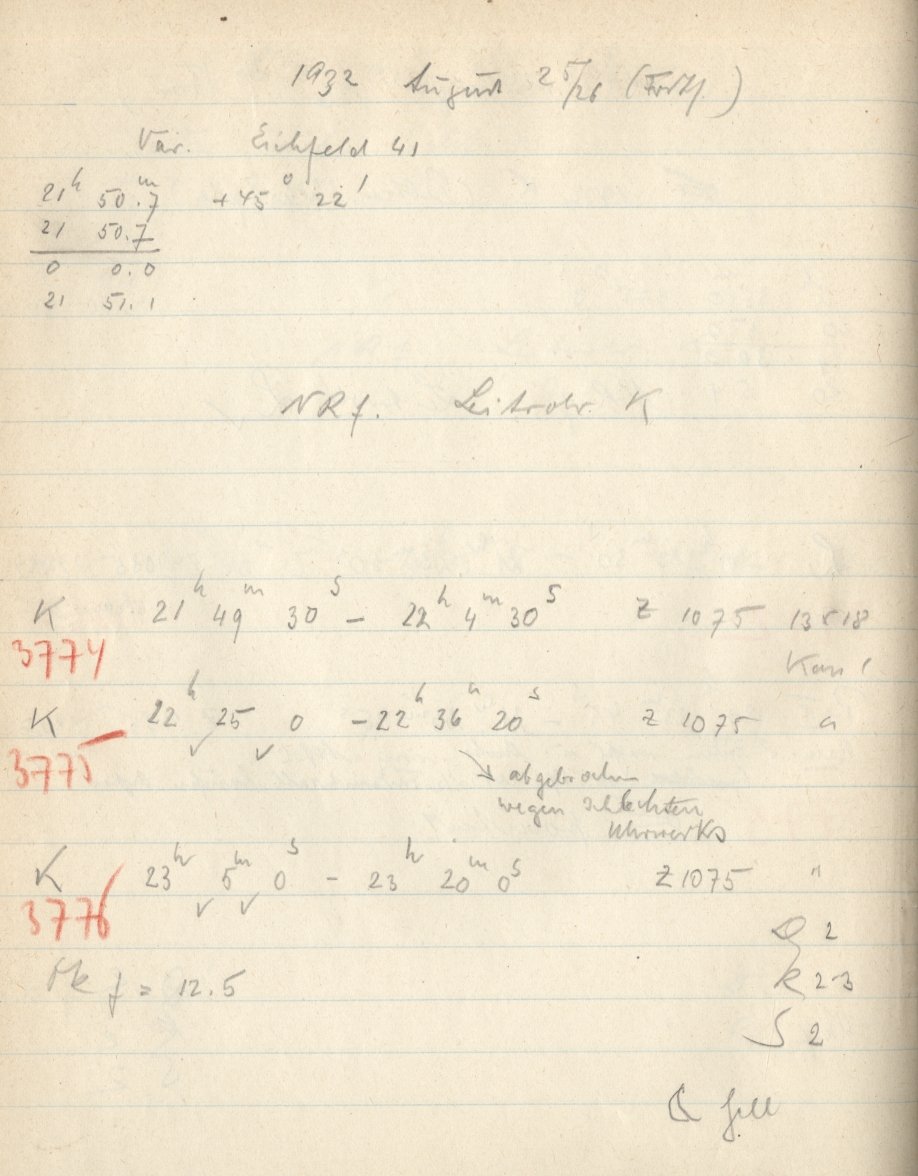 1932 August 25/26 (Forts.)
Var. Eichfeld 41
21h 50.m7 +45° 22'
21 50.7
0 0.0
21 51.1
NRf. Leitrohr K
K 21h 49m 30s – 22h 4m 30s Z 1075 13x18
3774
K 22h 25 0 – 22h 36m 20s Z 1075 "
3775
abgebrochen
wegen schlechten
Uhrwerks
K 23h 5m 0s – 23h 20m 0s Z 1075 "
3776
2
f = 12.5 k 2-3
S 2
hell